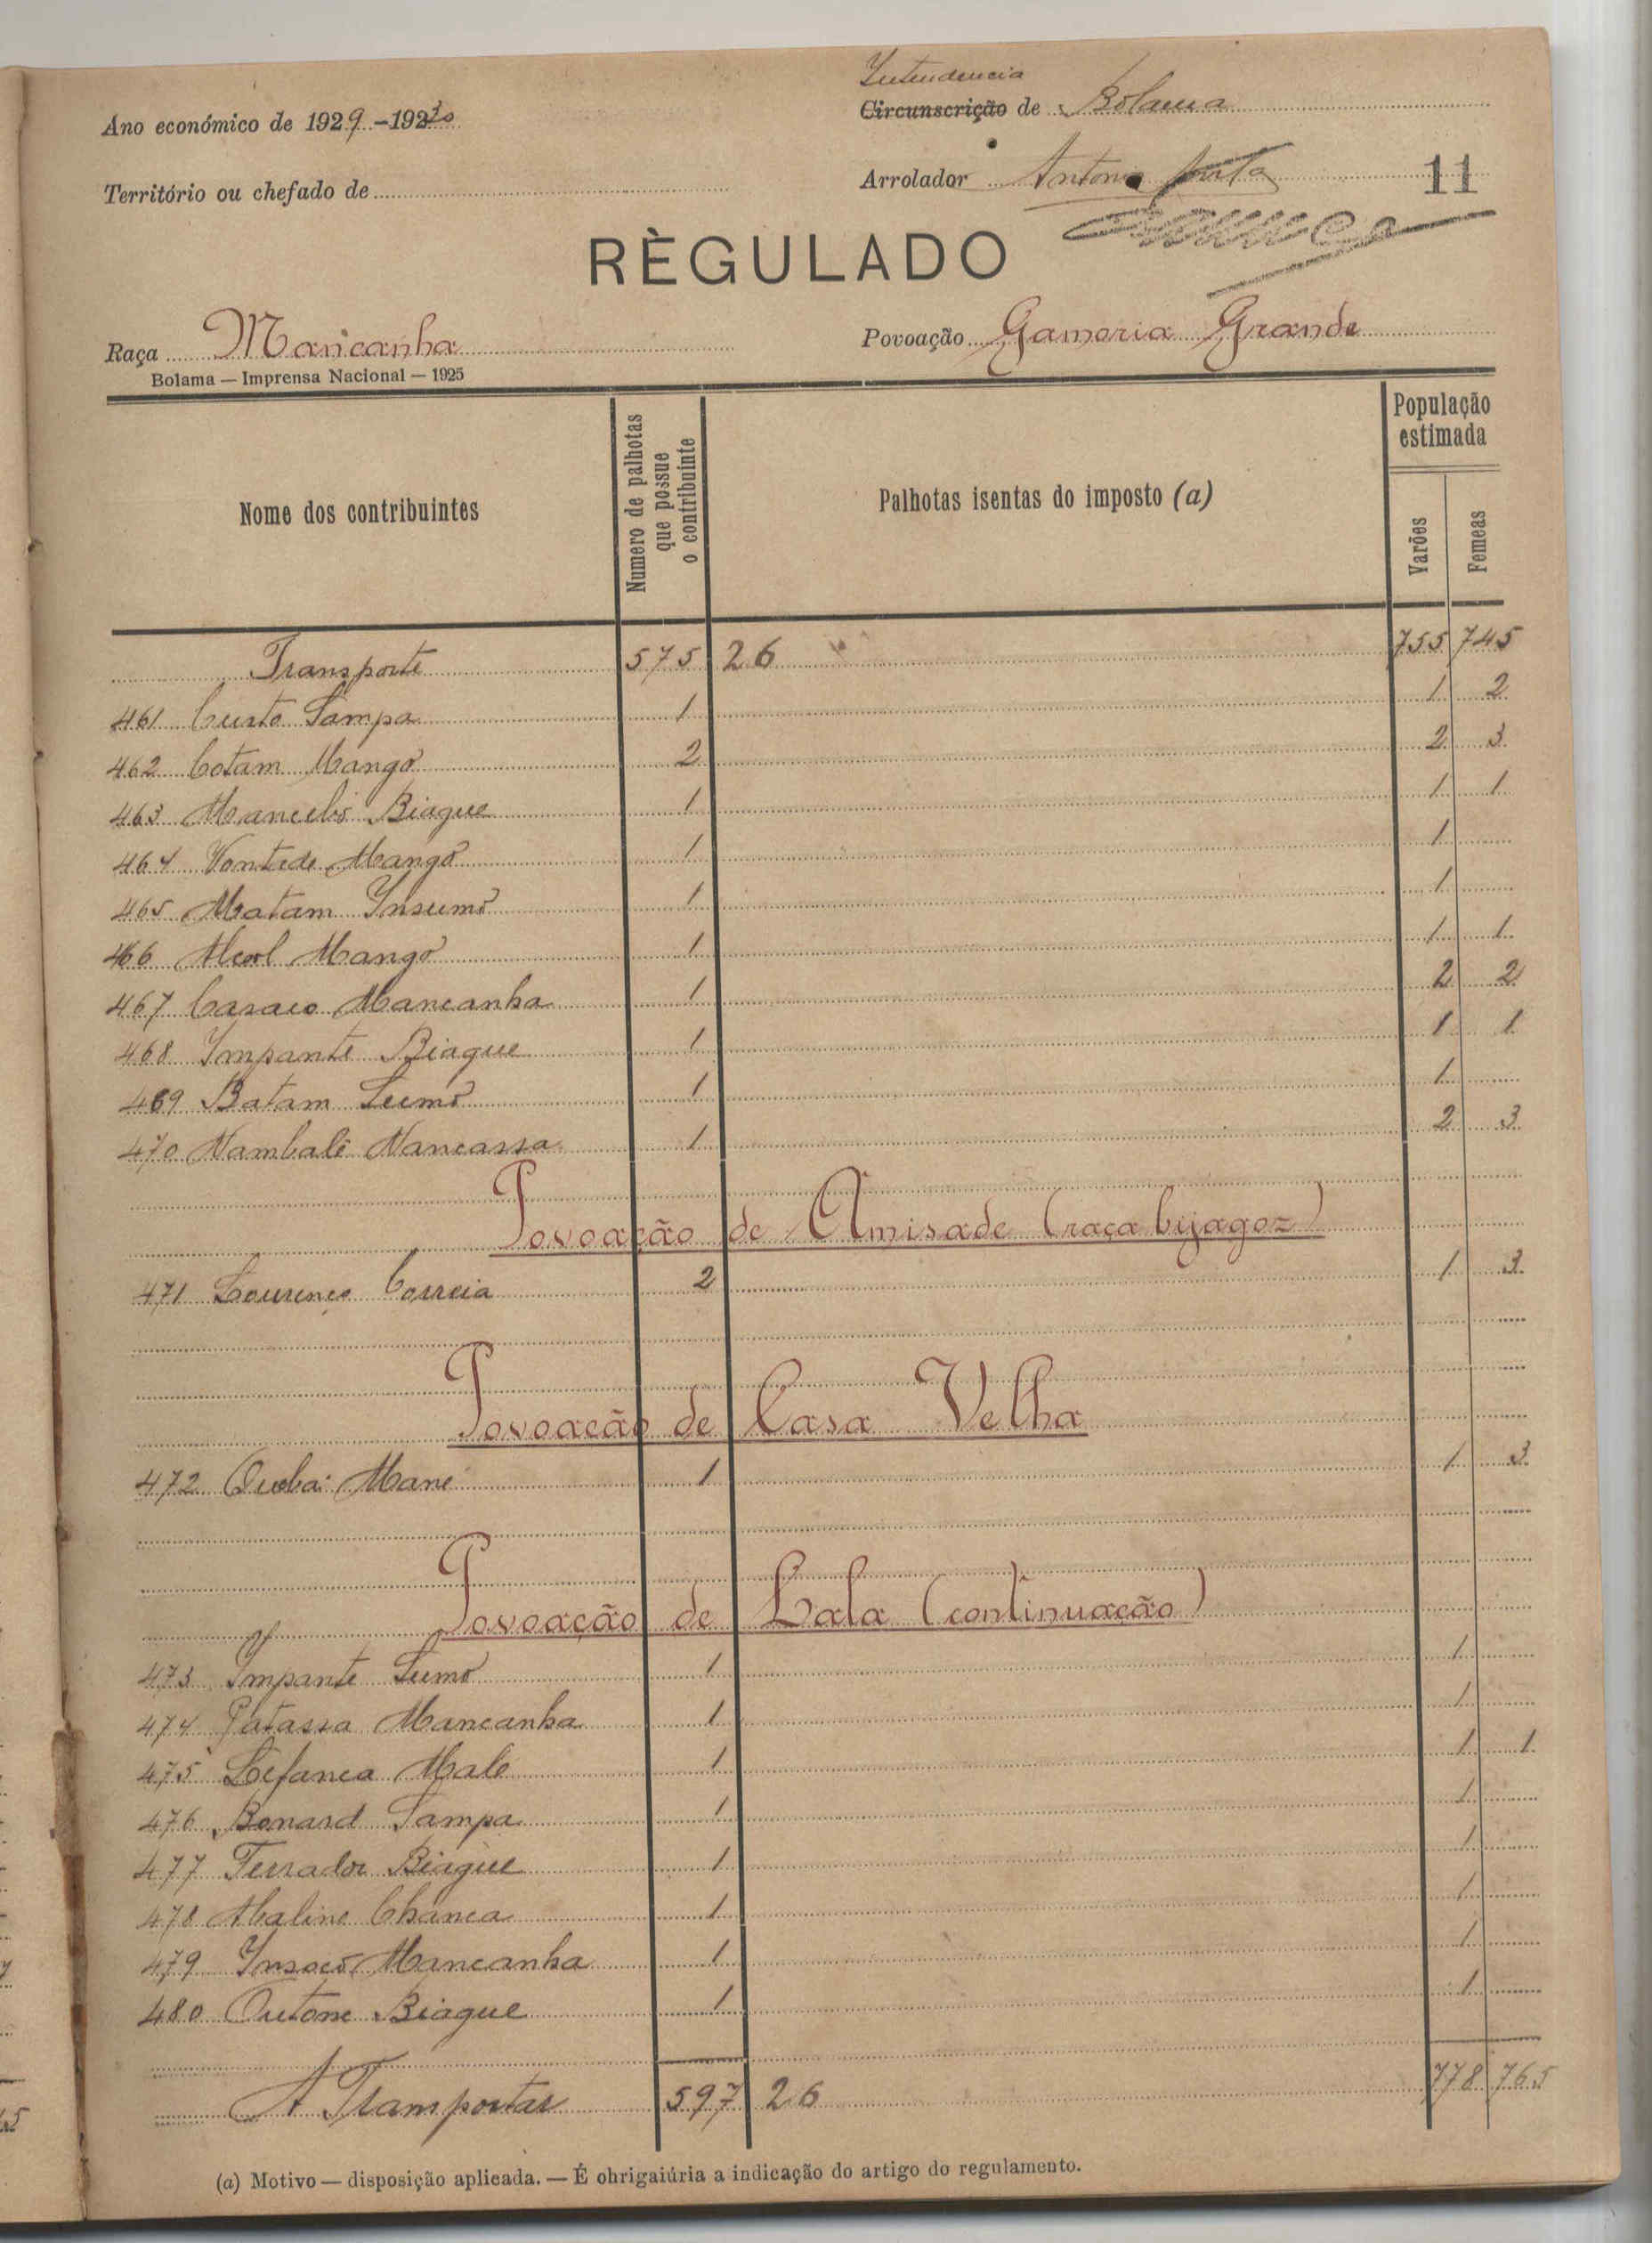 Intendencia
Ano económico de 1929-1930
Circunscrição de Bolama
Território ou chefado de
Arrolador Antonio
11
RÈGULADO
Raça Mancanha
Povoação Gameria Grande
Bolama — Imprensa Nacional — 1925
Nome dos contribuintes
Numero de palhotas que possue o contribuinte
Palhotas isentas do imposto (a)
População estimada
Varões
Femeas
Transporte 575 26 755 745
461 Custo Sampa 1 1 2
462 Cotam Mango 2 2 3
463 Biague 1 1 1
464 Vontade Mango 1 1
465 Matam Insumó 1 1
466 Mango 1 1 1
467 Casaco Mancanha 1 2 2
468 Impante Biague 1 1 1
469 Batam Sumó 1 1
470 Nambalé Nancassa 1 2 3
Povoação de Amisade (raça bijagoz)
471 Lourenço Correia 2 1 3
Povoação de Casa Velha
472 Queba Mané 1 1 3
Povoação de Lala (continuação)
473 Impante Sumó 1 1
474 Patassa Mancanha 1 1
475 Lefanca Malé 1 1 1
476 Bonard Sampa 1 1
477 Terrador Biague 1 1
478 Maline Chanca 1 1
479 Insacó Mancanha 1 1
480 Outone Biague 1 1
A Transportar 597 26 778 765
(a) Motivo — disposição aplicada. — É obrigaiúria a indicação do artigo do regulamento.